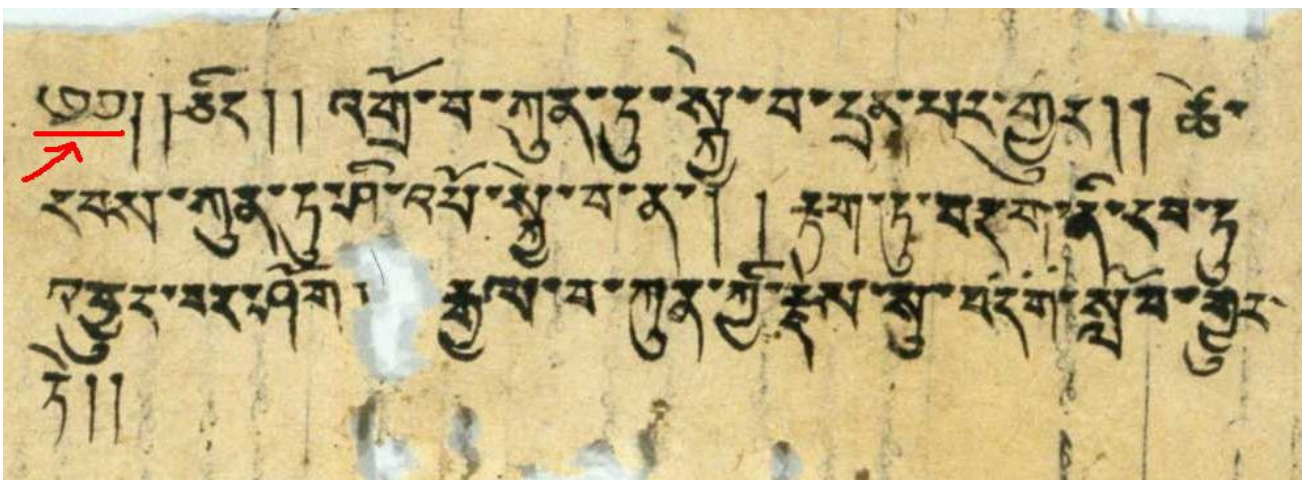 ༄༅། །ཅིང། ། འགྲོ་བ་ཀུན་ཏུ་སྐྱེ་བ་དྲན་པར་གྱུར། ། ཚེ་
རབས་ཀུན་ཏུ་ཤི་འཕོ་སྐྱེ་བ་ན་། ། རྟག་ཏུ་བདག་ནི་རབ་ཏུ
འབྱུང་བར་ཤོག ། རྒྱལ་བ་ཀུན་ཀྱི་རྗེས་སུ་བདག་སློབ་གྱུར་
ཏེ། །